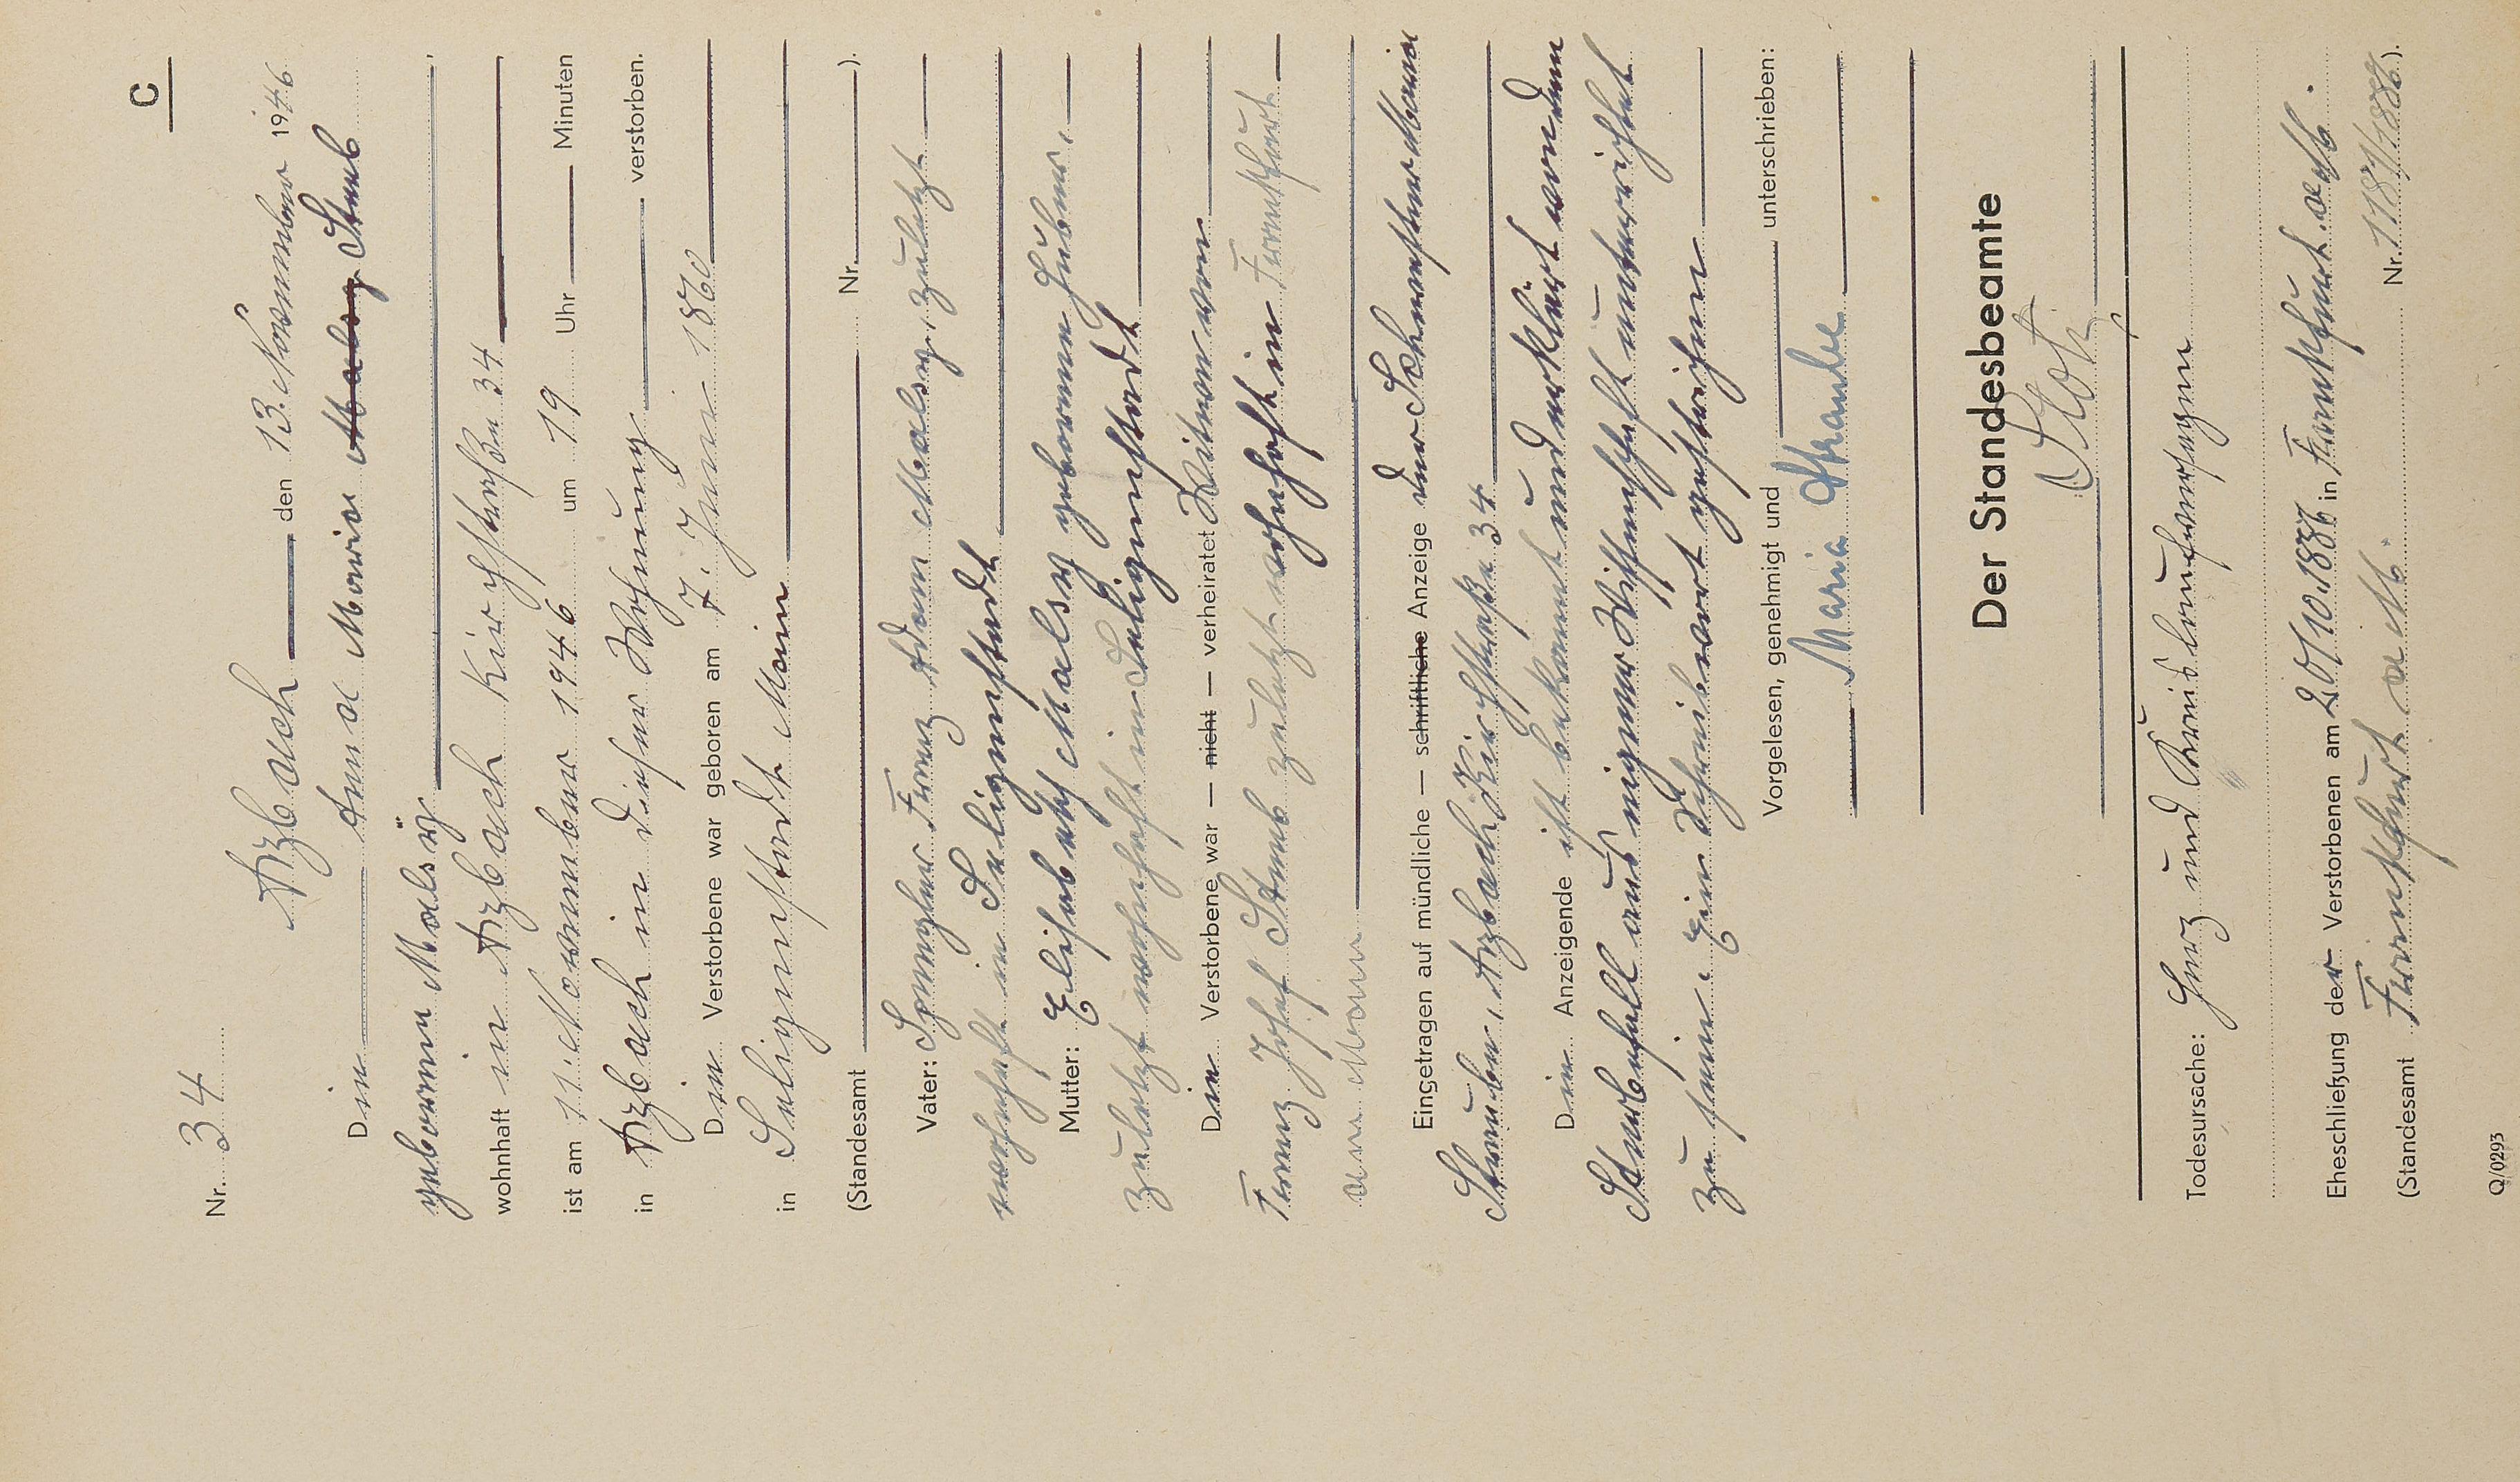 C
Nr. 34
Arzbach den 13. November 1946
Die Anna Maria Malsy Staub
geborene Malsy
wohnhaft in Arzbach Kirchstraße 34
ist am 11. November 1946 um 19 Uhr Minuten
in Arzbach in dieser Wohnung verstorben.
Die Verstorbene war geboren am 7. Juni 1860
in Seligenstadt Main
(Standesamt Nr. ).
Vater: Spengler Franz Adam Malsy, zuletzt
wohnhaft in Seligenstadt
Mutter: Elisabeth Malsy geborene Huber,
zuletzt wohnhaft in Seligenstadt
Die Verstorbene war — nicht — verheiratet Witwe von
Franz Josef Staub zuletzt wohnhaft in Frankfurt
am Main
Eingetragen auf mündliche — schriftliche Anzeige der Schwester Maria
Straube, Arzbach Kirchstraße 34
Die Anzeigende ist bekannt und erklärt von dem
Sterbefall aus eigener Wissenschaft unterrichtet
zu sein. Ein Schreibwort gestrichen
Vorgelesen, genehmigt und unterschrieben:
Maria Straube
Der Standesbeamte
Todesursache: Herz und Kreislaufversagen
Eheschließung der Verstorbenen am 20/10.1886 in Frankfurt a/M.
(Standesamt Frankfurt a M. Nr. 1187/1886).
Q/0293